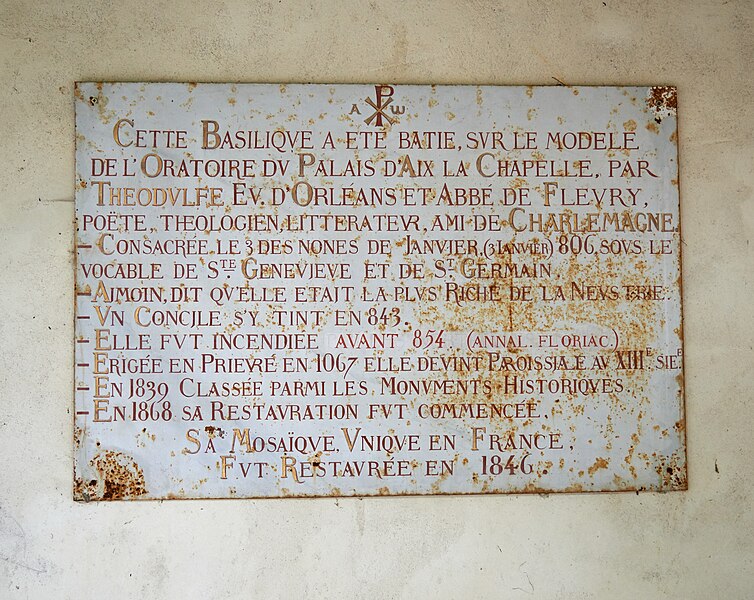 A ☧ ω
CETTE BASILIQVE A ETÉ BATIE, SVR LE MODELE
DE L'ORATOIRE DV PALAIS D'AIX LA CHAPELLE, PAR
THEODVLFE EV. D'ORLÉANS ET ABBE DE FLEVRY,
POËTE, THEOLOGIEN, LITTERATEVR, AMI DE CHARLEMAGNE
– CONSACRÉE LE 3 DES NONES DE JANVJER, (3 JANVIER) 806, SOVS LE
VOCABLE DE STE GENEVJEVE ET DE ST GERMAIN
– AJMOJN, DIT QV'ELLE ETAJT LA PLVS RICHE DE LA NEVSTRIE.
– VN CONCJLE S'Y TJNT EN 843.
– ELLE FVT INCENDIEE AVANT 854. (ANNAL. FLORIAC.)
– ERIGÉE EN PRIEVRÉ EN 1067 ELLE DEVINT PAROISSIALE AV XIIIE SIE.E
– EN 1839 CLASSÉE PARMI LES MONVMENTS HISTORIQVES
– EN 1868 SA RESTAVRATION FVT COMMENCÉE.
SA MOSAÏQVE, VNIQVE EN FRANCE,
FVT RESTAVRÉE EN 1846.